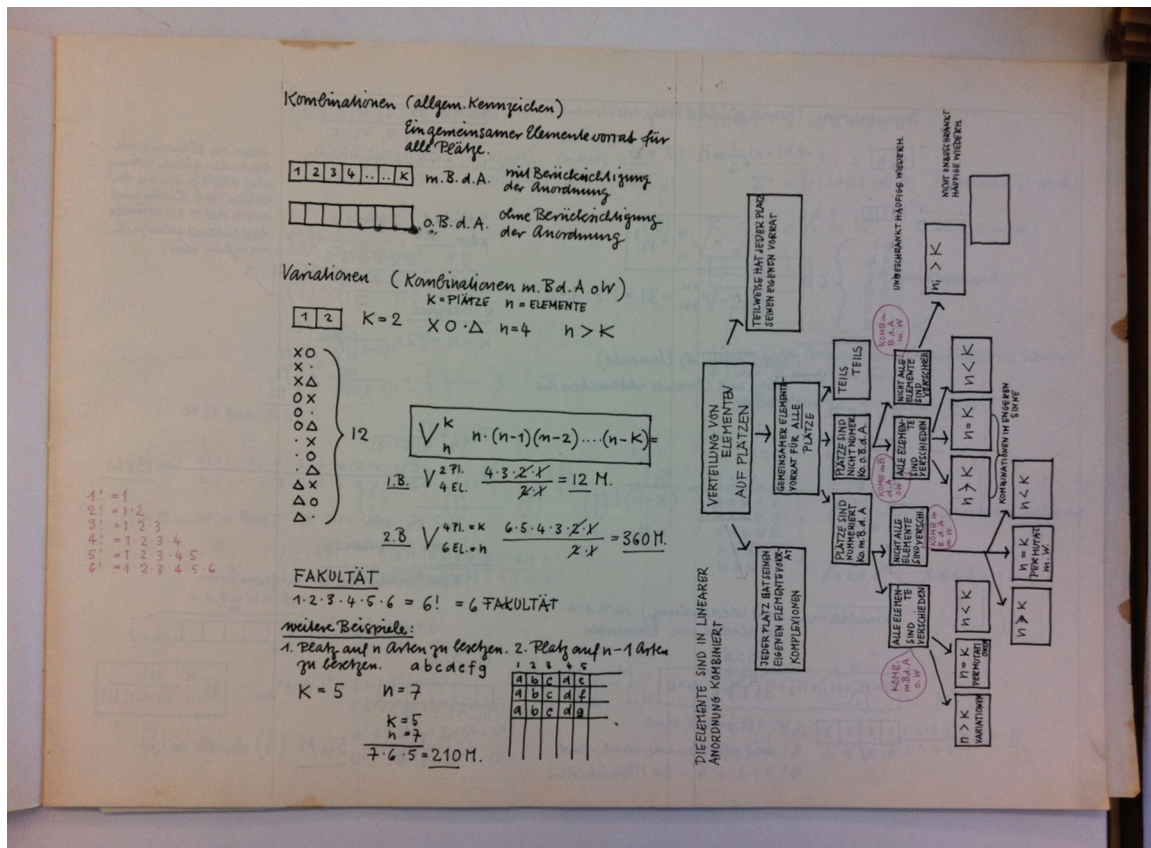 Kombinationen (allgem. Kennzeichen)
Ein gemeinsamer Elementevorrat für
alle Plätze.
1 2 3 4 . . . . K m.B.d.A. mit Berücksichtigung
der Anordnung
o.B.d.A. ohne Berücksichtigung
der Anordnung
Variationen (Kombinationen m.B.d.A oW)
K = PLÄTZE n = ELEMENTE
1 2 K = 2 X O · Δ n = 4 n > K
X O
X ·
X Δ
O X
O ·
O Δ
· X
· O
· Δ
Δ X
Δ O
Δ ·
12
V n k n·(n-1)(n-2)....(n-K) =
1.B. V 2 Pl. 4 EL. 4·3·2·1 / 2·1 = 12 M.
2.B V 4 Pl. = K 6 EL. = n 6·5·4·3·2·1 / 2·1 = 360 M.
1! = 1
2! = 1·2
3! = 1·2·3
4! = 1·2·3·4
5! = 1·2·3·4·5
6! = 1·2·3·4·5·6
FAKULTÄT
1·2·3·4·5·6 = 6! = 6 FAKULTÄT
weitere Beispiele:
1. Platz auf n Arten zu besetzen. 2. Platz auf n-1 Arten
zu besetzen. a b c d e f g
K = 5 n = 7
1 2 3 4 5
a b c d e
a b c d f
a b c d g
K = 5
n = 7
7·6·5 = 210 M.
DIE ELEMENTE SIND IN LINEARER
ANORDNUNG KOMBINIERT
VERTEILUNG VON
ELEMENTEN
AUF PLÄTZEN
JEDER PLATZ HAT SEINEN
EIGENEN ELEMENTEVORRAT
KOMPLEXIONEN
GEMEINSAMER ELEMENTE
VORRAT FÜR ALLE
PLÄTZE
TEILWEISE HAT JEDER PLATZ
SEINEN EIGENEN VORRAT
PLÄTZE SIND
NUMMERIERT
Ko.m.B.d.A
PLÄTZE SIND
NICHT NUMER.
Ko.o.B.d.A.
TEILS
TEILS
ALLE ELEMENTE
SIND
VERSCHIEDEN
KOMB.
m.B.d.A
o.W.
NICHT ALLE
ELEMENTE
SIND VERSCH.
KOMB. m
B.d.A.
m.W.
ALLE ELEMENTE
SIND
VERSCHIEDEN
KOMB mB
d.A
o.W
NICHT ALLE
ELEMENTE
SIND
VERSCHIED
KOMB m
B.d.A
m.W
n > K
VARIATIONEN
n = K
PERMUTATIONEN
n < K
n > K
n = K
PERMUTAT
m.W.
n < K
n > K
n = K
n < K
KOMBINATIONEN IM ENGEREN
SINNE
UNBESCHRÄNKT HÄUFIGE WIEDERH.
ni > K
NICHT UNBESCHRÄNKT
HÄUFIGE WIEDERH.